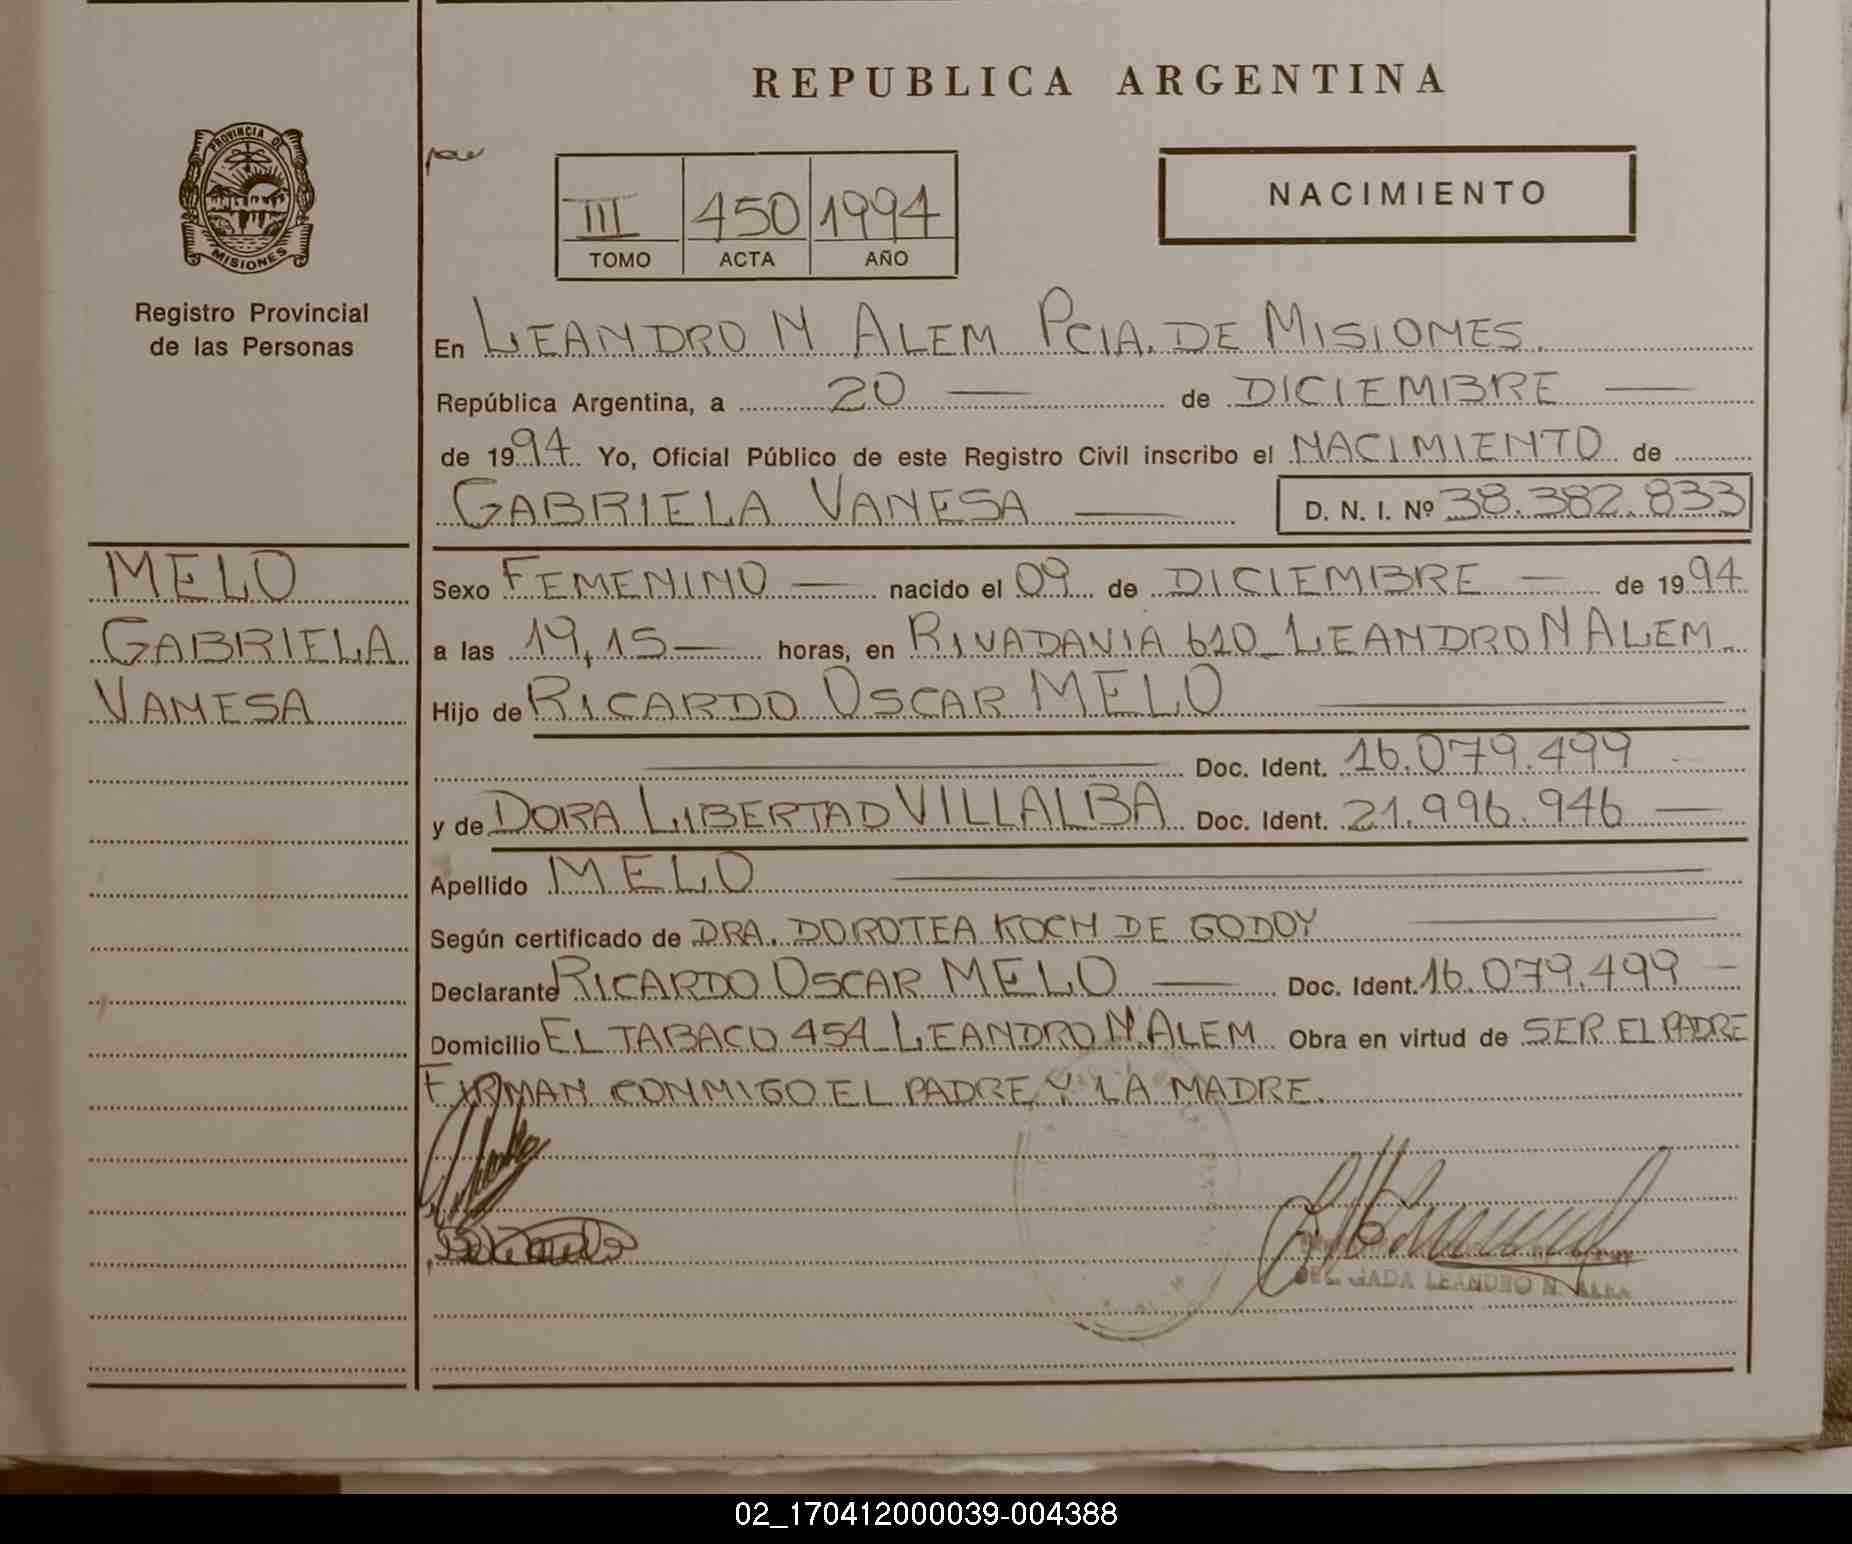 REPUBLICA ARGENTINA
PROVINCIA DE
MISIONES
Registro Provincial
de las Personas
III 450 1994
TOMO ACTA AÑO
NACIMIENTO
En LEANDRO N ALEM PCIA. DE MISIONES.
República Argentina, a 20 de DICIEMBRE
de 1994 Yo, Oficial Público de este Registro Civil inscribo el NACIMIENTO de
GABRIELA VANESA D. N. I. Nº 38.382.833
MELO
GABRIELA
VANESA
Sexo FEMENINO nacido el 09 de DICIEMBRE de 1994
a las 19,15 horas, en RIVADAVIA 610_LEANDRO N ALEM.
Hijo de RICARDO OSCAR MELO
Doc. Ident. 16.079.499
y de DORA LIBERTAD VILLALBA Doc. Ident. 21.996.946
Apellido MELO
Según certificado de DRA. DOROTEA KOCH DE GODOY
Declarante RICARDO OSCAR MELO Doc. Ident. 16.079.499
Domicilio EL TABACO 454_LEANDRO N ALEM Obra en virtud de SER EL PADRE
FIRMAN CONMIGO EL PADRE Y LA MADRE.
LEANDRO N. ALEM
02_170412000039-004388